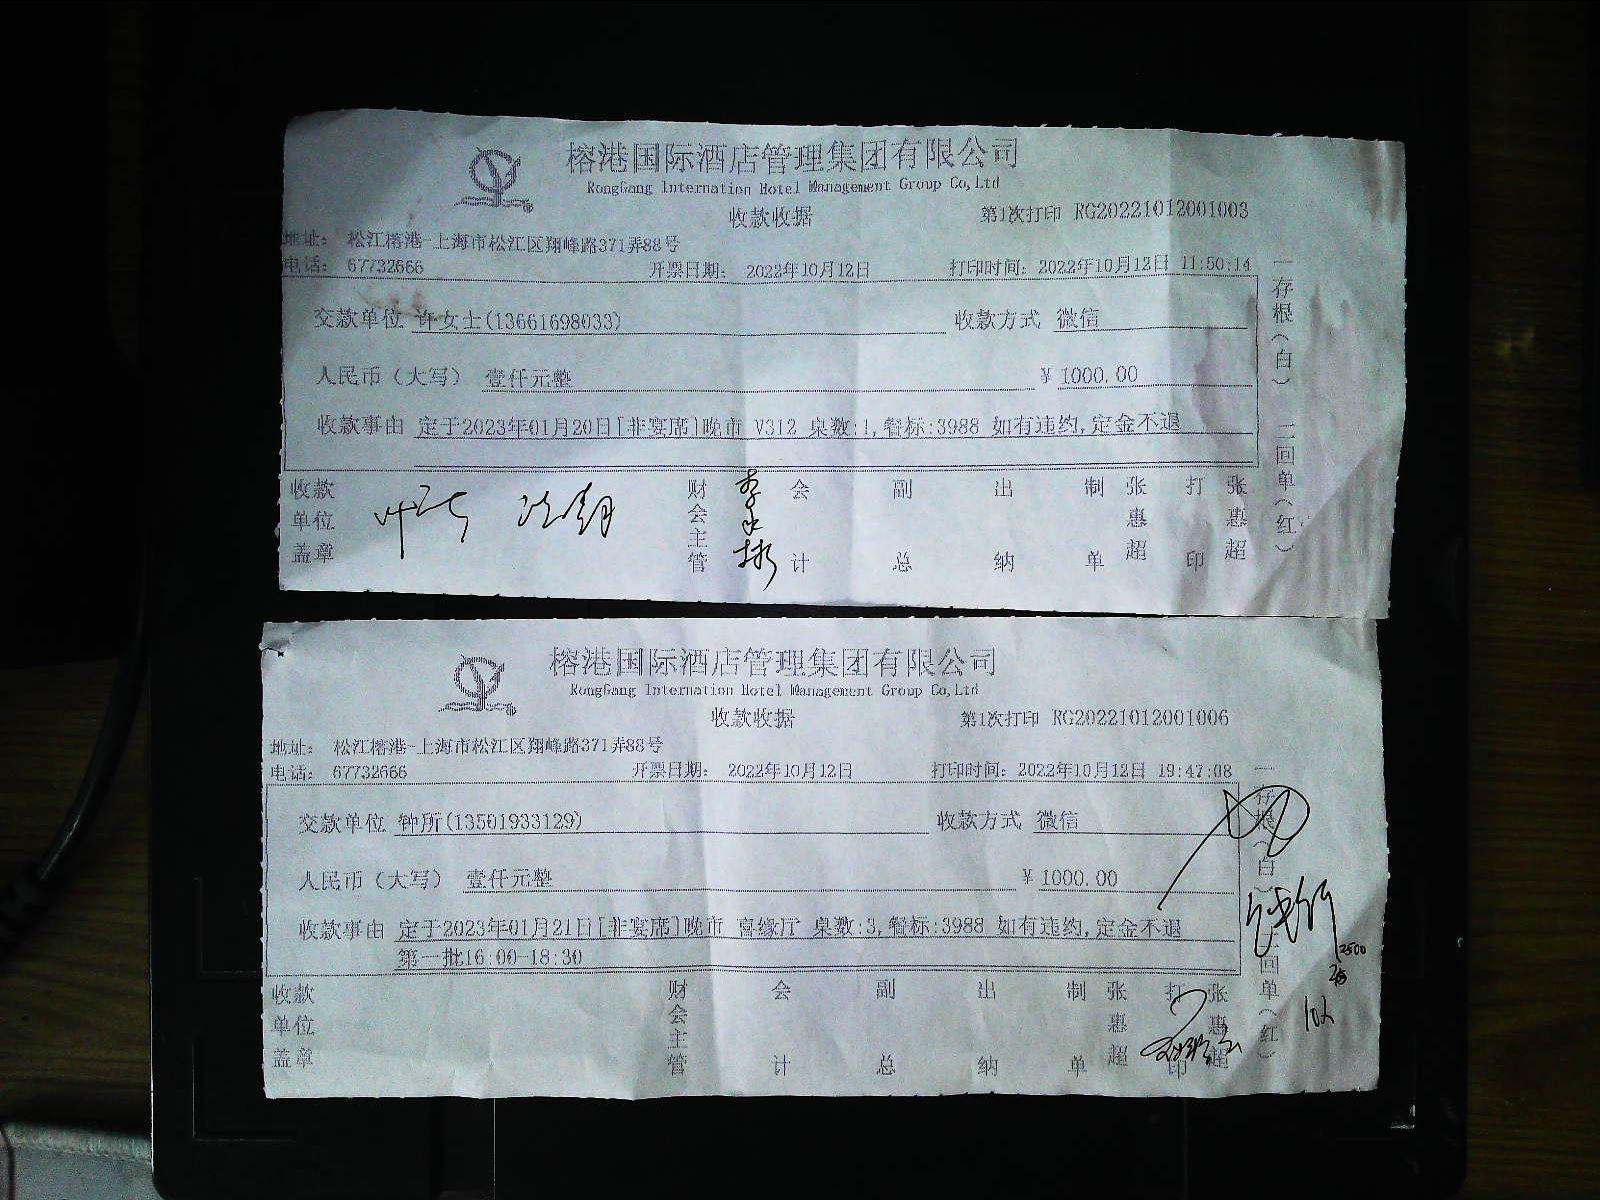 榕港国际酒店管理集团有限公司
RongGang Internation Hotel Management Group Co,Ltd
收款收据 第1次打印 RG20221012001003
地址： 松江榕港-上海市松江区翔峰路371弄88号
电话： 67732666 开票日期： 2022年10月12日 打印时间：2022年10月12日 11:50:14
交款单位 许女士(13661698033) 收款方式 微信
人民币（大写） 壹仟元整 ￥1000.00
收款事由 定于2023年01月20日[非宴席]晚市 V312 桌数:1,餐标:3988 如有违约,定金不退
收款单位盖章 财会主管 会计 副总 出纳 制单 张惠超 打印 张惠超
一存根（白） 二回单（红）
榕港国际酒店管理集团有限公司
RongGang Internation Hotel Management Group Co,Ltd
收款收据 第1次打印 RG20221012001006
地址： 松江榕港-上海市松江区翔峰路371弄88号
电话： 67732666 开票日期： 2022年10月12日 打印时间：2022年10月12日 19:47:08
交款单位 钟所(13501933129) 收款方式 微信
人民币（大写） 壹仟元整 ￥1000.00
收款事由 定于2023年01月21日[非宴席]晚市 喜缘厅 桌数:3,餐标:3988 如有违约,定金不退
第一批16:00-18:30
收款单位盖章 财会主管 会计 副总 出纳 制单 张惠超 打印 张惠超
一存根（白） 二回单（红）
2500